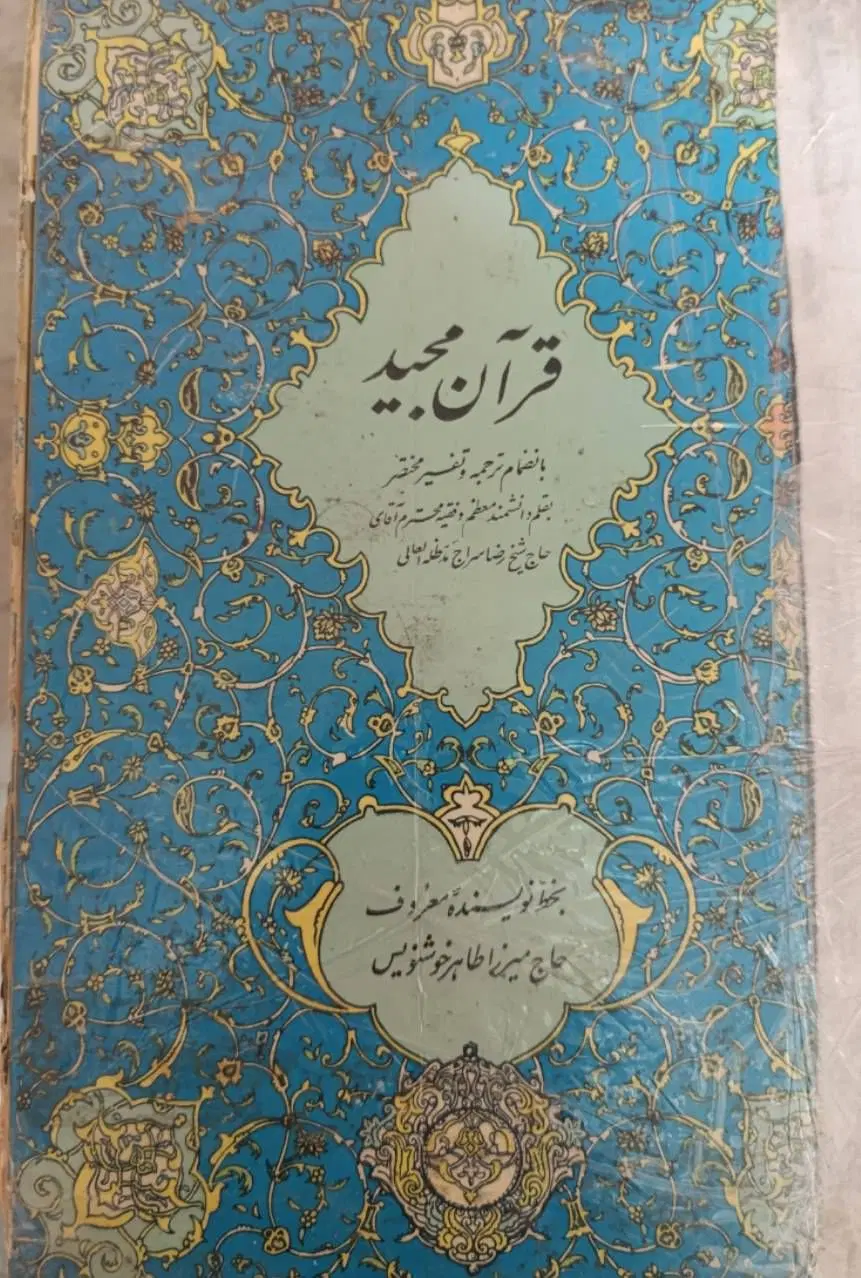 قرآن مجید
بانضمام ترجمه و تفسیر مختصر
بقلم دانشمند معظم و فقیه محترم آقای
حاج شیخ رضا سراج مدظله العالی
بخط نویسنده معروف
حاج میرزا طاهر خوشنویس